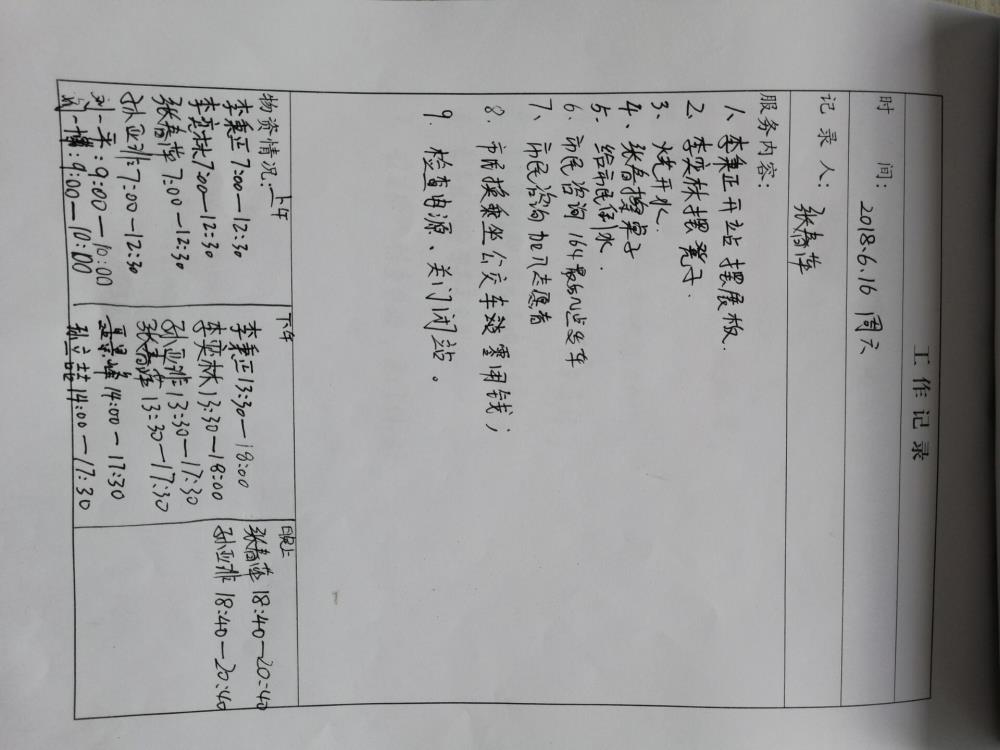 工作记录
时 间: 2018.6.16 周六
记录人: 张春萍
服务内容:
1、李秉正开站摆展板.
2、李奕林摆凳子.
3、烧开水.
4、张春擦桌子
5、给市民倒水.
6、市民咨询164最后几点发车
7、市民咨询加入志愿者
8、市民换乘坐公交车破零用钱;
9、检查电源、关门闭站。
物资情况:上午
李秉正7:00—12:30
李奕林7:00—12:30
张春萍 7:00—12:30
孙亚非7:00—12:30
刘一平:9:00—10:00
刘一博:9:00—10:00
下午
李秉正13:30—18:00
李奕林13:30—18:00
孙亚非13:30—17:30
张春萍13:30—17:30
14:00—17:30
孙立喆14:00—17:30
晚上
张春萍 18:40—20:40
孙亚非 18:40—20:40